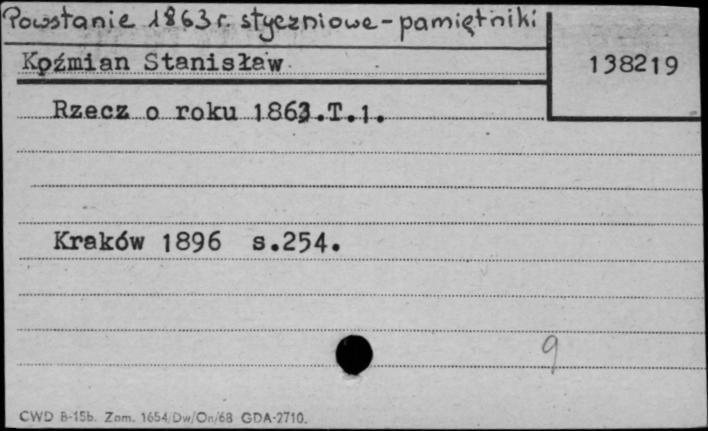 Powstanie 1863 r. styczniowe - pamiętniki
Koźmian Stanisław
138219
Rzecz o roku 1863.T.1.
Kraków 1896 s.254.
9
CWD B-15b. Zam. 1654/Dw/On/68 GDA-2710.